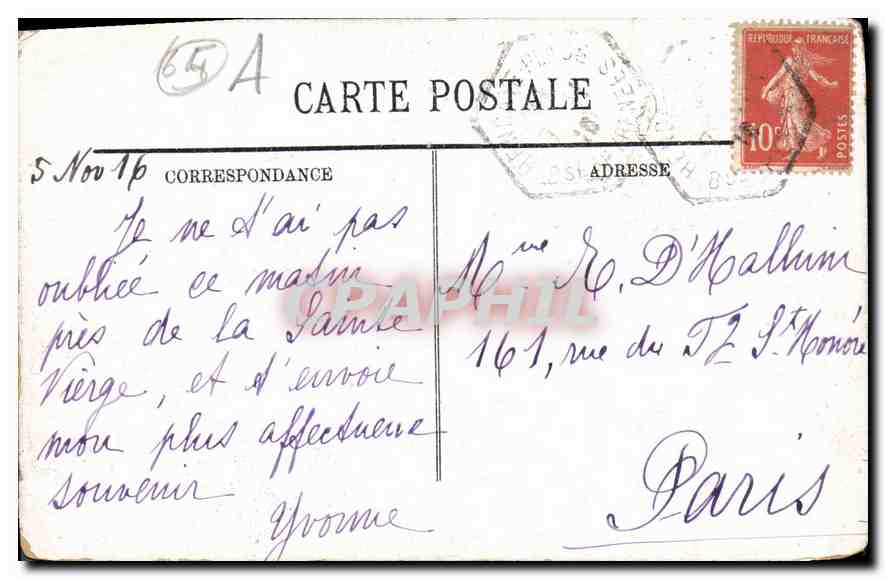 64 A
CARTE POSTALE
REPUBLIQUE FRANÇAISE
10c
POSTES
5 Nov 16
CORRESPONDANCE
ADRESSE
Je ne t'ai pas
oubliée ce matin
près de la Sainte
Vièrge, et t'envoie
mon plus affectueux
souvenir
Yvonne
Mme E. D'Halluin
161, rue du Fg St Honoré
Paris
CPAPHIL